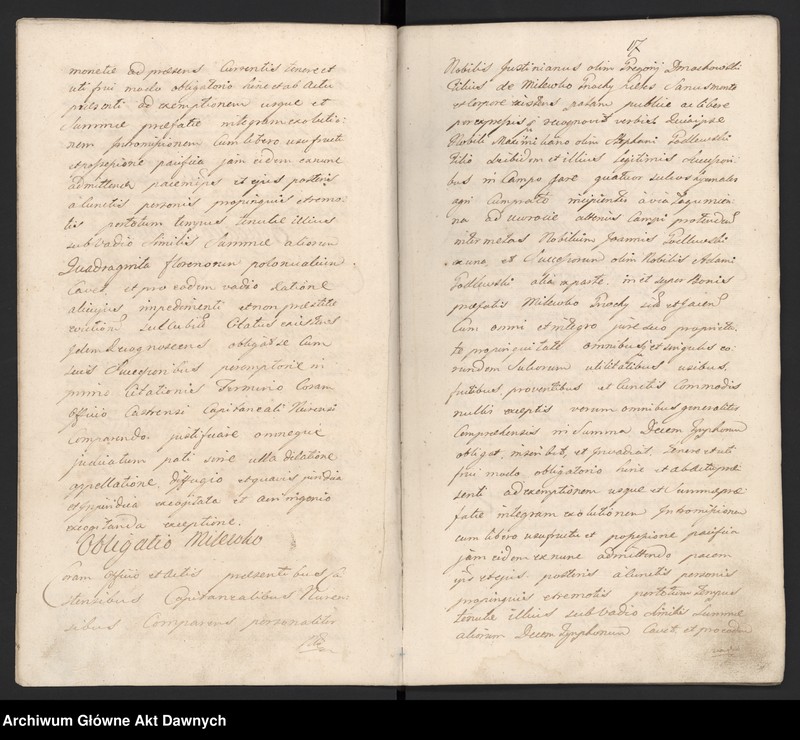 monetæ ad præsens Currentis tenere et
uti frui modo obligatorio hinc et ab Actu
præsenti ad exemptionem usque et
Summæ præfatæ integram exolutio-
nem Intromissionem Cum libero usufructu
et possessione pacifica jam eidem ex nunc
admittendo pacem ipsis et ejus posteris
à Cunctis personis propinquis et remo-
tis per totum tempus tenutæ illius
sub vadio Similis Summæ aliorum
Quadraginta florenorum polonicalium
Cavet, et pro eodem vadio ratione
alicujus impedimenti et non præstitæ
evictionis succubitus Citatus existens
fidem Recognoscens obligat se Cum
suis Successoribus peremptorie in
primo Citationis Termino Coram
Officio Castrensi Capitaneali Nurensi
Comparendo justificare omneque
judicatum pati sine ulla dilatione
appellatione, diffugio et quavis juridica
et injuridica excogitata et aut ingenio
excogitanda exceptione.
Obligatio Milewko
Coram Officio et Actis præsentibus Ca-
strensibus Capitanealibus Nuren-
sibus Comparens personaliter
17
Nobilis Justinianus olim Gregorij Dmochowski
filius de Milewko
Sanus mente
et corpore existens palam publice ac libere
per expressum recognovit verbis Quia ipse
Nobili Maximiliano olim Stephani Godlewski
filio
et illius legitimis Successori-
bus in Campo
quatuor sulcos agrionales
agri
incipientes à via
ad
alterius Campi protenden
inter metas Nobilium Joannis Godlewski
ex una, et Successorum olim Nobilis Adami
Godlewski alia ex parte, in et super Bonis
præfatis Milewko
sitos et jacen
Cum omni et integro jure suo proprieta-
te propinquitate omnibusque et singulis eo-
rundem Sulcorum utilitatibus usibus,
fructibus proventibus et Cunctis Commodis
nullis exceptis verum omnibus generaliter
Comprehensis in Summa Decem Tymphorum
obligat, inscribit, et invadiat, tenere et uti
frui modo obligatorio hinc et ab actu præ-
senti ad exemptionem usque et Summæ præ-
fatæ integram exolutionem Intromissionem
cum libero usufructu et possessione pacifica
jam eidem ex nunc admittendo pacem
ipsis et ejus posteris à Cunctis personis
propinquis et remotis per totum tempus
tenutæ illius sub vadio Similis Summæ
aliorum Decem Tymphorum Cavet, et pro eodem
Archiwum Główne Akt Dawnych